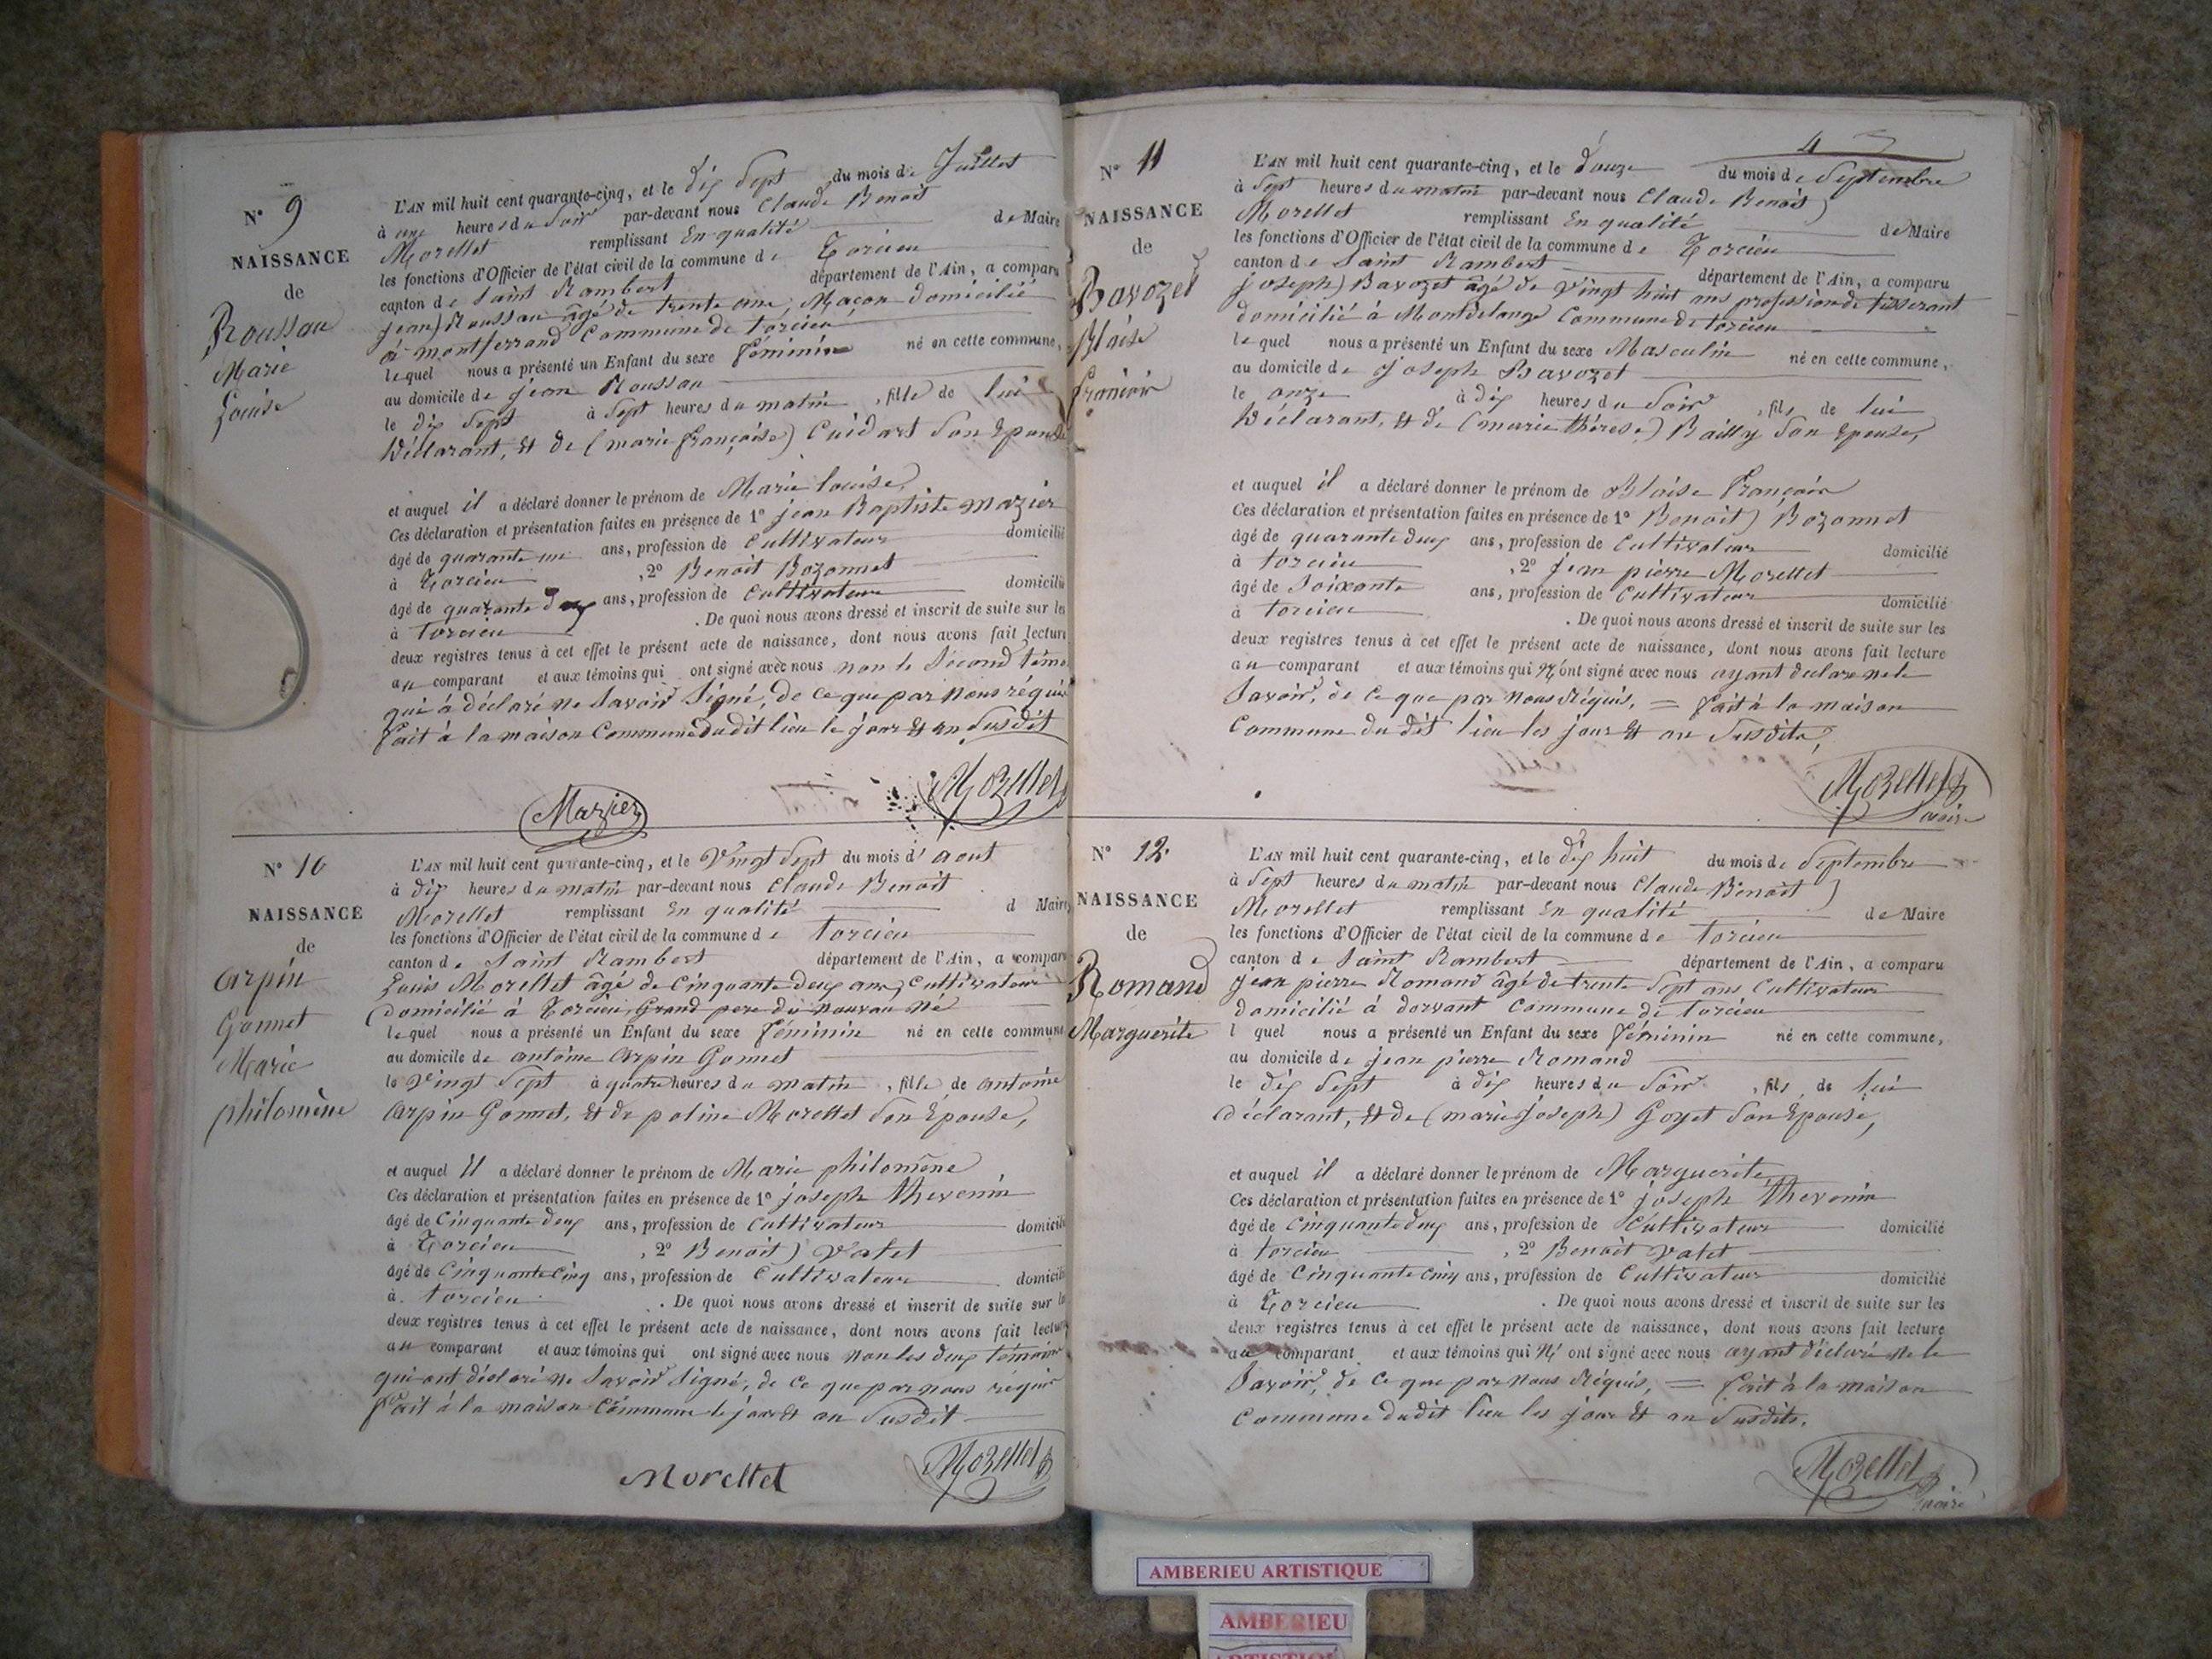 N° 9
NAISSANCE
de
Roussau
Marie
Louise
L'AN mil huit cent quarante-cinq, et le dix Sept du mois de Juillet
à une heures du Soir par-devant nous Claude Benoit
Morellet remplissant En qualité de Maire
les fonctions d'Officier de l'état civil de la commune de Torcieu
canton de Saint Rambert département de l'Ain, a comparu
jean) Roussau âgé de trente ans, Maçon domicilié
à montferrand Commune de torcieu
lequel nous a présenté un Enfant du sexe féminin né en cette commune,
au domicile de jean Roussau
le dix Sept à Sept heures du matin, fille de lui
Déclarant, et de (marie françoise) Cuidart Son Epouse
et auquel il a déclaré donner le prénom de Marie louise,
Ces déclaration et présentation faites en présence de 1° jean Baptiste mazier
âgé de quarante un ans, profession de Cultivateur domicilié
à Torcieu, 2° Benoit Bozonnet
âgé de quarante deux ans, profession de Cultivateur domicilié
à torcieu. De quoi nous avons dressé et inscrit de suite sur les
deux registres tenus à cet effet le présent acte de naissance, dont nous avons fait lecture
au comparant et aux témoins qui ont signé avec nous non le Second témoi
qui a déclaré ne Savoir Signé, de ce que par nous réquis
fait à la maison Commune dudit lieu le jour et an Susdit
Mazier Morellet
N° 10
NAISSANCE
de
arpin
Gonnet
Marie
philomène
L'AN mil huit cent quarante-cinq, et le Vingt Sept du mois d'aout
à dix heures du matin par-devant nous Claude Benoit
Morellet remplissant En qualité d Maire
les fonctions d'Officier de l'état civil de la commune de torcieu
canton de Saint Rambert département de l'Ain, a comparu
Louis Morellet âgé de Cinquante deux ans, Cultivateur
domicilié à Torcieu, Grand pere du nouveau Né
lequel nous a présenté un Enfant du sexe féminin né en cette commune
au domicile de antoine arpin Gonnet
le Vingt Sept à quatre heures du matin, fille de antoine
arpin Gonnet, et de poline Morellet Son Epouse,
et auquel Il a déclaré donner le prénom de Marie philomène
Ces déclaration et présentation faites en présence de 1° joseph thevenin
âgé de Cinquante deux ans, profession de Cultivateur domicilié
à Torcieu, 2° Benoit) Valet
âgé de Cinquante Cinq ans, profession de Cultivateur domicilié
à torcieu. De quoi nous avons dressé et inscrit de suite sur les
deux registres tenus à cet effet le présent acte de naissance, dont nous avons fait lecture
au comparant et aux témoins qui ont signé avec nous non les deux témoins
qui ont déclaré ne Savoir Signé, de ce que par nous réquis
fait à la maison Commune le jour et an Susdit
Morellet Morellet
4
N° 11
NAISSANCE
de
Bavozet
Blaise
françois
L'AN mil huit cent quarante-cinq, et le douze du mois de Septembre
à Sept heures du matin par-devant nous Claude Benoit)
Morellet remplissant En qualité de Maire
les fonctions d'Officier de l'état civil de la commune de Torcieu
canton de Saint Rambert département de l'Ain, a comparu
joseph) Bavozet âgé de Vingt huit ans profession de tisserant
domicilié à Montdelange Commune de torcieu
lequel nous a présenté un Enfant du sexe Masculin né en cette commune,
au domicile de joseph Bavozet
le onze à dix heures du Soir, fils de lui
Déclarant, et de (marie thérèse) Bailly Son Epouse,
et auquel il a déclaré donner le prénom de Blaise françois
Ces déclaration et présentation faites en présence de 1° Benoit) Bozonnet
âgé de quarante deux ans, profession de Cultivateur domicilié
à torcieu, 2° jean pierre Morellet
âgé de Soixante ans, profession de Cultivateur domicilié
à torcieu. De quoi nous avons dressé et inscrit de suite sur les
deux registres tenus à cet effet le présent acte de naissance, dont nous avons fait lecture
au comparant et aux témoins qui N'ont signé avec nous ayant declare ne le
Savoir, de ce que par nous Réquis, = fait à la maison
Commune du dit lieu les jour et an Susdits,
Morellet
maire
N° 12
NAISSANCE
de
Romand
Marguerite
L'AN mil huit cent quarante-cinq, et le dix huit du mois de Septembre
à Sept heures du matin par-devant nous Claude Benoit)
Morellet remplissant En qualité de Maire
les fonctions d'Officier de l'état civil de la commune de torcieu
canton de Saint Rambert département de l'Ain, a comparu
jean pierre Romand âgé de trente Sept ans Cultivateur
domicilié à dorvant Commune de torcieu
l quel nous a présenté un Enfant du sexe féminin né en cette commune,
au domicile de jean pierre Romand
le dix Sept à dix heures du Soir, fils de lui
déclarant, et de (marie joseph) Goyet Son Epouse,
et auquel il a déclaré donner le prénom de Marguerite,
Ces déclaration et présentation faites en présence de 1° joseph thevenin
âgé de Cinquante deux ans, profession de Cultivateur domicilié
à torcieu, 2° Benoit Valet
âgé de Cinquante Cinq ans, profession de Cultivateur domicilié
à Torcieu. De quoi nous avons dressé et inscrit de suite sur les
deux registres tenus à cet effet le présent acte de naissance, dont nous avons fait lecture
au comparant et aux témoins qui N' ont signé avec nous ayant déclaré ne le
Savoir, de ce que par nous Réquis, = fait à la maison
Commune dudit lieu les jour et an Susdits.
Morellet
maire
AMBERIEU ARTISTIQUE
AMBERIEU
ARTISTIQUE